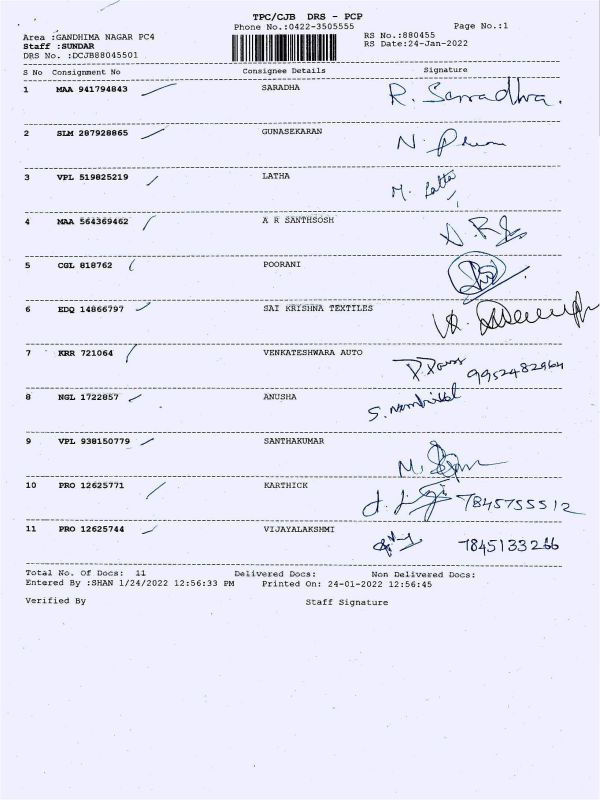 TPC/CJB DRS - PCP
Phone No.:0422-3505555 Page No.:1
Area :GANDHIMA NAGAR PC4 RS No.:880455
Staff :SUNDAR RS Date:24-Jan-2022
DRS No. :DCJB88045501
S No Consignment No Consignee Details Signature
1 MAA 941794843 SARADHA R. Sarradha.
2 SLM 287928865 GUNASEKARAN N.
3 VPL 519825219 LATHA M. Latha
4 MAA 564369462 A R SANTHSOSH
5 CGL 818762 POORANI
6 EDQ 14866797 SAI KRISHNA TEXTILES
7 KRR 721064 VENKATESHWARA AUTO 9952482964
8 NGL 1722857 ANUSHA S.
9 VPL 938150779 SANTHAKUMAR M.
10 PRO 12625771 KARTHICK 7845755512
11 PRO 12625744 VIJAYALAKSHMI 7845133266
Total No. Of Docs: 11 Delivered Docs: Non Delivered Docs:
Entered By :SHAN 1/24/2022 12:56:33 PM Printed On: 24-01-2022 12:56:45
Verified By Staff Signature